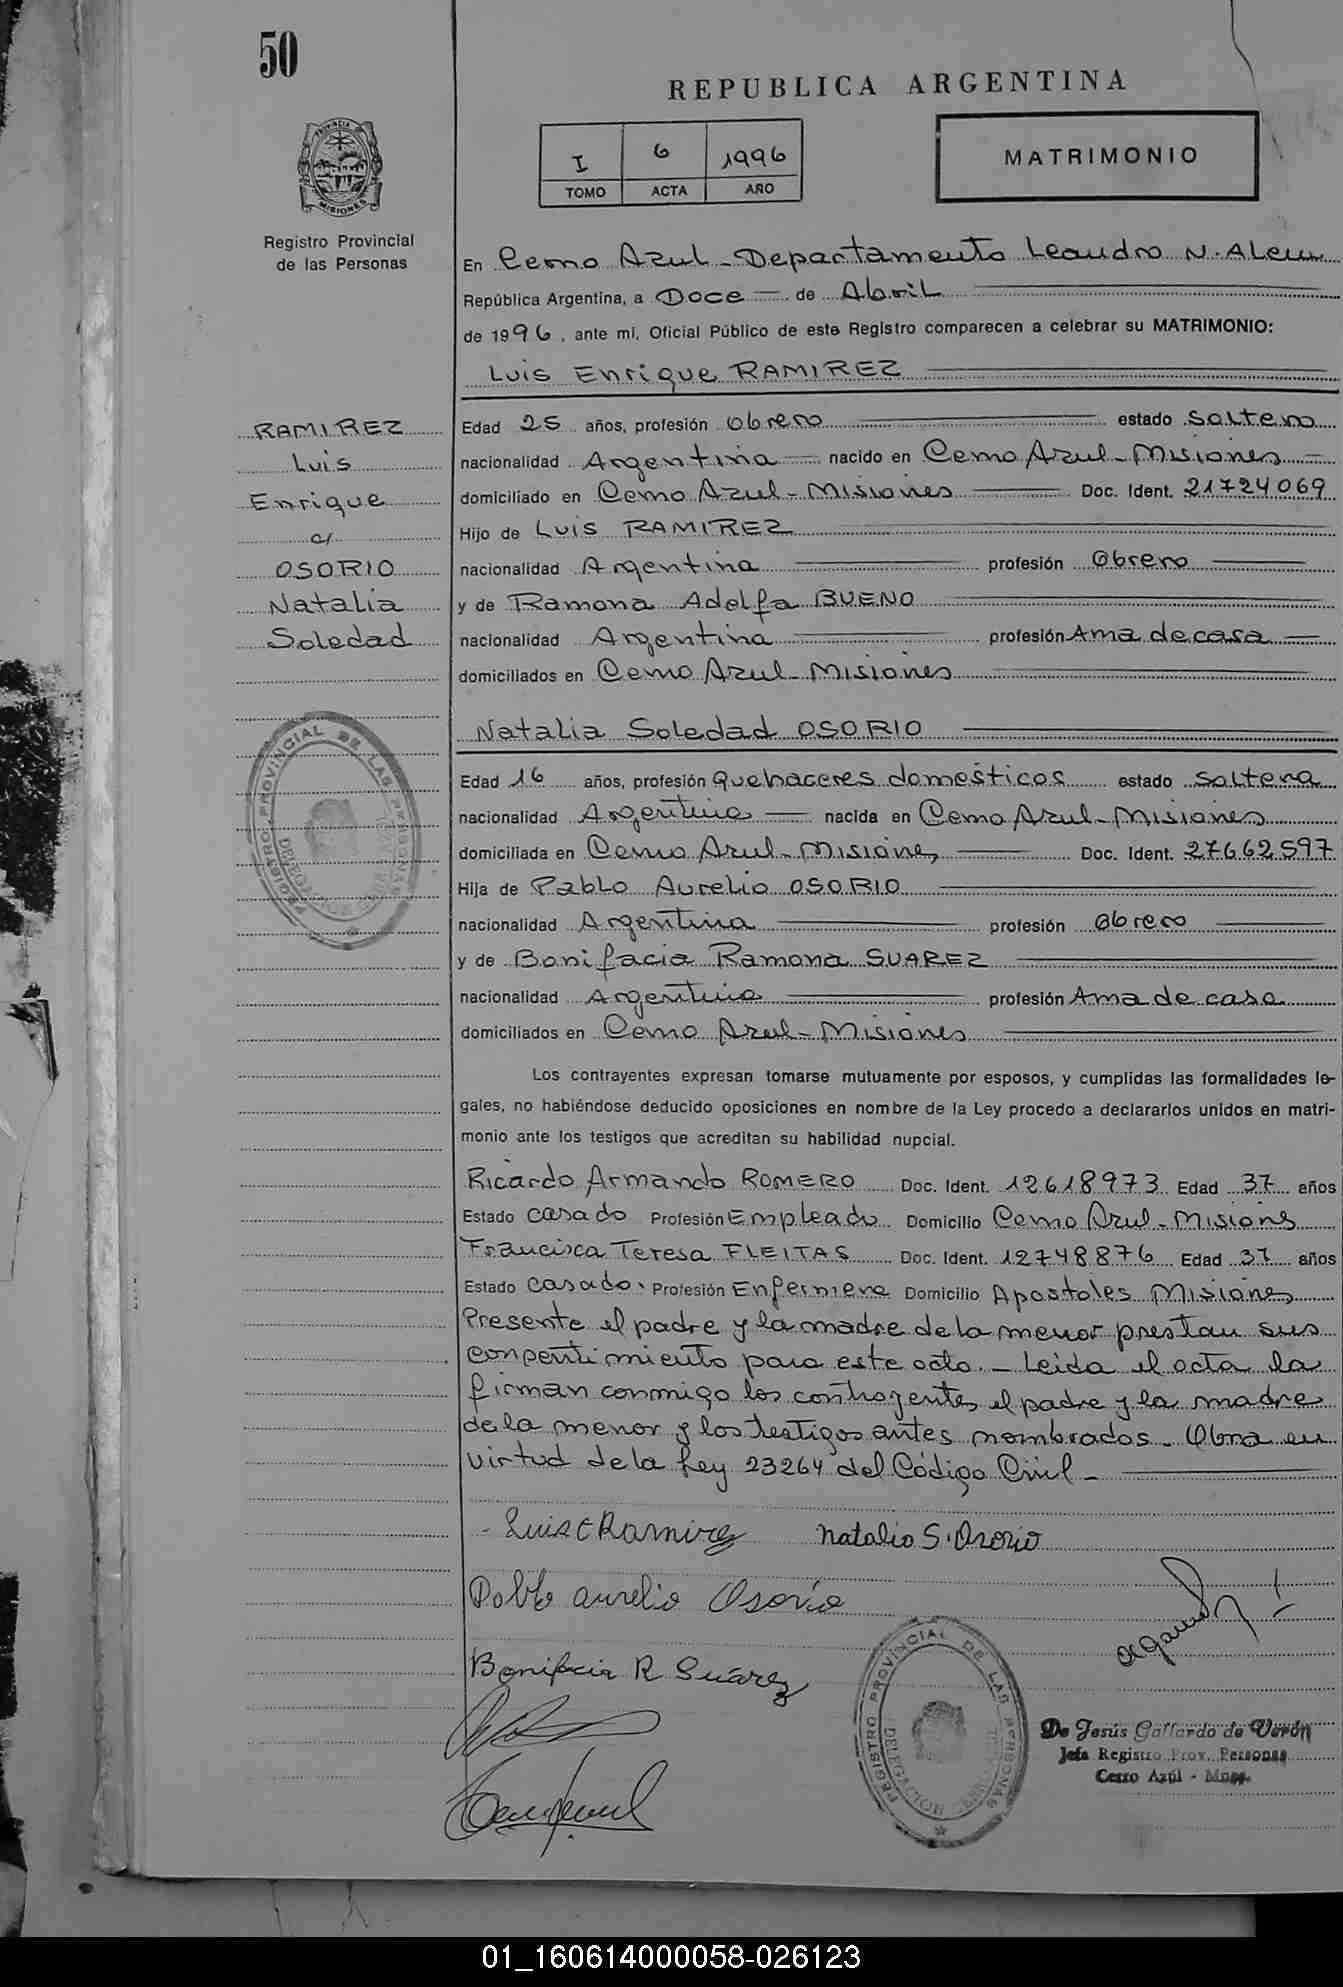 50
REPUBLICA ARGENTINA
I 6 1996
TOMO ACTA AÑO
MATRIMONIO
PROVINCIA
MISIONES
Registro Provincial
de las Personas
En Cerro Azul - Departamento Leandro N. Alem
República Argentina, a Doce — de Abril
de 1996, ante mi, Oficial Público de este Registro comparecen a celebrar su MATRIMONIO:
Luis Enrique RAMIREZ
RAMIREZ
Luis
Enrique
c/
OSORIO
Natalia
Soledad
Edad 25 años, profesión Obrero estado Soltero
nacionalidad Argentina — nacido en Cerro Azul - Misiones —
domiciliado en Cerro Azul - Misiones — Doc. Ident. 21724069
Hijo de Luis RAMIREZ
nacionalidad Argentina — profesión Obrero —
y de Ramona Adelfa BUENO
nacionalidad Argentina — profesión Ama de casa —
domiciliados en Cerro Azul - Misiones
Natalia Soledad OSORIO
Edad 16 años, profesión Quehaceres domésticos estado soltera
nacionalidad Argentina — nacida en Cerro Azul - Misiones
domiciliada en Cerro Azul - Misiones — Doc. Ident. 27662597
Hija de Pablo Aurelio OSORIO
nacionalidad Argentina — profesión Obrero —
y de Bonifacia Ramona SUAREZ
nacionalidad Argentina — profesión Ama de casa
domiciliados en Cerro Azul - Misiones
REGISTRO PROVINCIAL DE LAS PERSONAS
DELEGACION CERRO AZUL
Los contrayentes expresan tomarse mutuamente por esposos, y cumplidas las formalidades le-
gales, no habiéndose deducido oposiciones en nombre de la Ley procedo a declararlos unidos en matri-
monio ante los testigos que acreditan su habilidad nupcial.
Ricardo Armando ROMERO Doc. Ident. 12618973 Edad 37 años
Estado Casado Profesión Empleado Domicilio Cerro Azul - Misiones
Francisca Teresa FLEITAS Doc. Ident. 12748876 Edad 37 años
Estado Casado. Profesión Enfermera Domicilio Apostoles Misiones
Presente el padre y la madre de la menor prestan sus
consentimiento para este acto. - Leida el acta la
firman conmigo los contrayentes, el padre y la madre
de la menor y los testigos antes nombrados - Obra en
virtud de la Ley 23264 del Código Civil -
Luis E Ramirez Natalia S. Osorio
Pablo aurelio Osorio
Bonifacia R Suárez
REGISTRO PROVINCIAL DE LAS PERSONAS
DELEGACION CERRO AZUL
De Jesús Gallardo de Verón
Jefa Registro Prov. Personas
Cerro Azúl - Mnes.
01_160614000058-026123